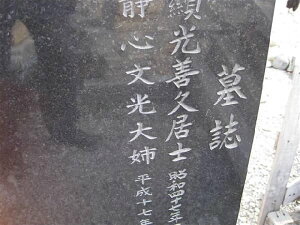 墓誌
顯光善久居士 昭和四十七年
静心文光大姉 平成十七年